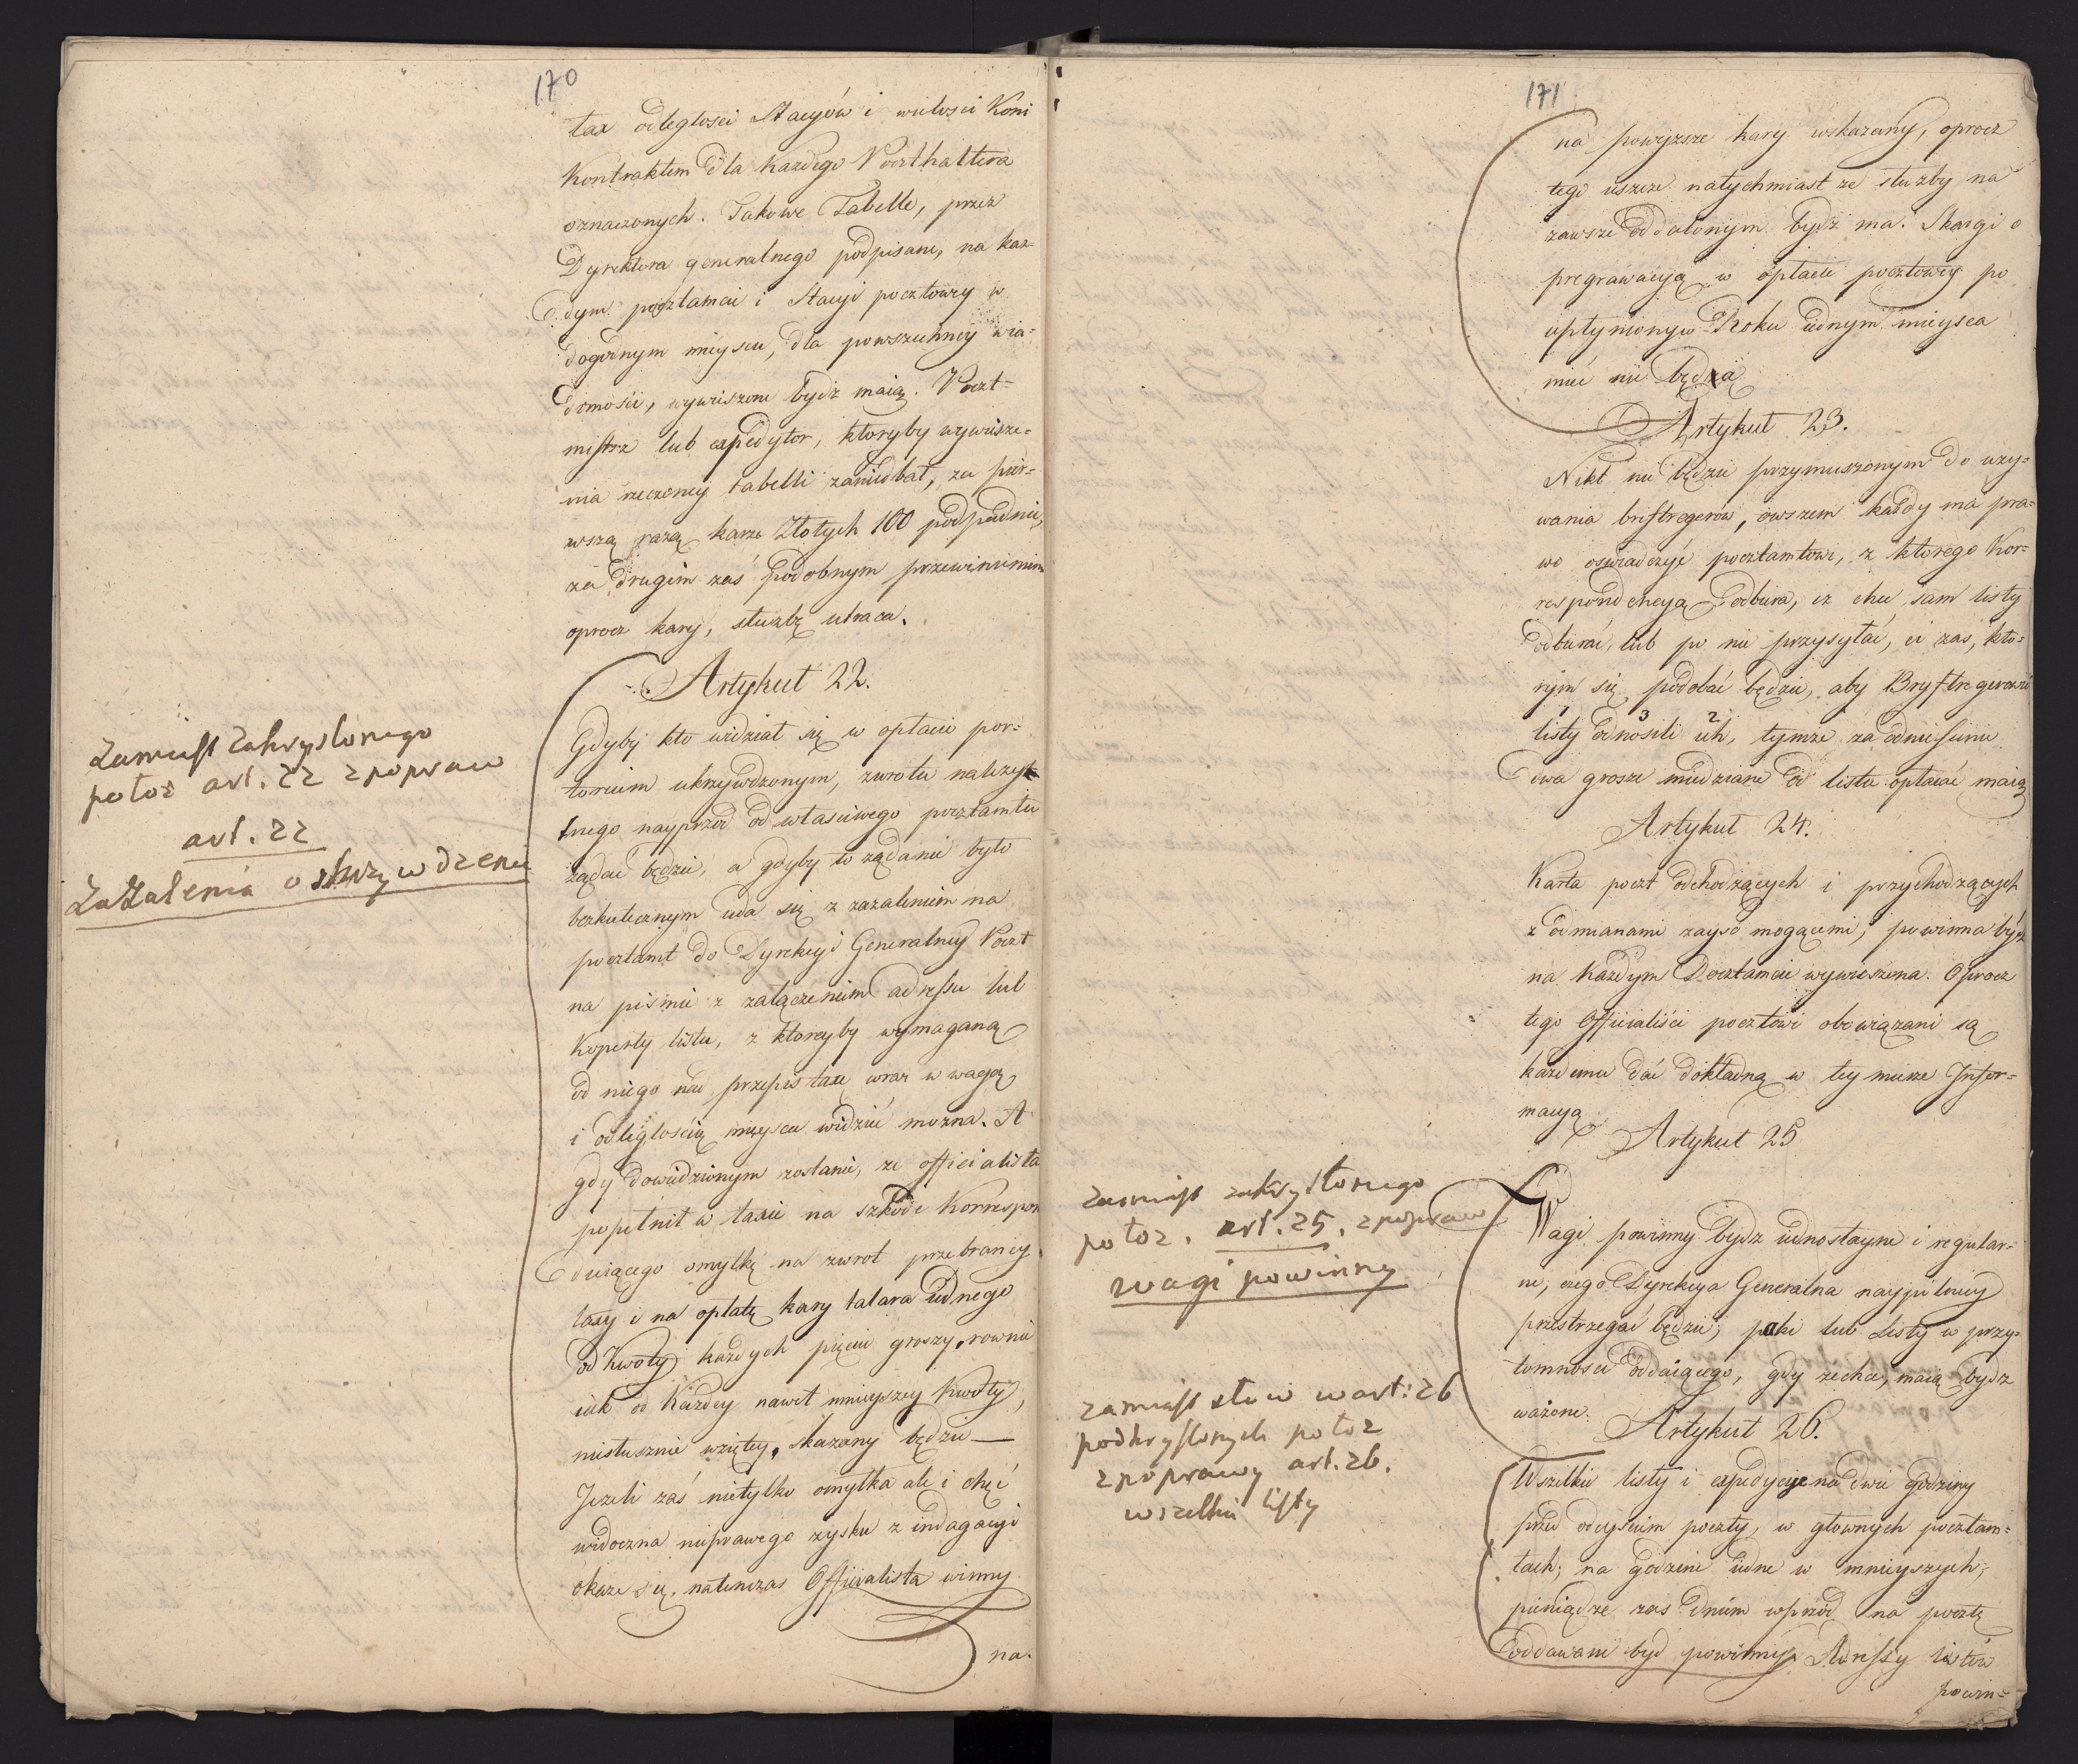 170
tax odległości Stacyów i wielości Koni
Kontraktem dla każdego Poczthaltera
oznaczonych. Takowe Tabelle, przez
Dyrektora generalnego podpisane, na kaz-
dym pocztamcie i Stacyi pocztowey w
dogodnym mieyscu, dla powszechney wia-
domości, wywieszone bydz maią. Poczt-
mistrz lub expedytor, ktoryby wywiesze-
nia rzeczoney tabelli zaniedbał, za pier-
wszą razą karze Złotych 100 podpadnie,
za drugim zaś podobnym przewinieniem
oprocz kary, służbę utraca.
Artykuł 22.
Gdyby kto widział się w opłacie por-
torium ukrzywdzonym, zwrotu należyt
tnego nayprzod od właściwego pocztamtu
żądać będzie, a gdyby to żądanie było
bezskutecznym uda się z zażaleniem na
pocztamt do Dyrekcyi Generalney Poczt
na piśmie z załączeniem adressu lub
Koperty listu, z ktoreyby wymaganą
od niego nad przepis taxę wraz w wagą
i odległością mieysca widzieć można. A
gdy dowiedzionym zostanie, ze officialista
popełnił w taxie na szkodę Korrespon
duiącego omyłkę na zwrot przebraney
taxy i na opłatę kary talara iednego
od Kwoty każdych pięciu groszy, rownie
iak od Każdey nawet mnieyszey Kwoty,
niesłusznie wziętey, skazany będzie —
Jeżeli zaś nietylko omyłka ale i chęć
widoczna nieprawego zysku z indagacyi
okaze się, natenczas Officialista winny
na.
Zamiast zakryslonego
położ art. 22 z popraw
art. 22
Zażalenia o skrzywdzenie
171
na powyzsze kary wskazany, oprocz
tego ieszcze natychmiast ze służby na
zawsze oddalonym bydz ma. Skargi o
pregrawacyją w opłacie pocztowey po
upłynionym Roku iednym mieysca
mieć nie będzą
Artykuł 23.
Nikt nie będzie przymuszonym do uzy-
wania brieftregerow, owszem każdy ma pra-
wo oświadczyć pocztamtowi, z ktorego Kor-
respondencyą odbiera, iż chce sam listy
odbierać, lub po nie przysyłać, ci zas, kto-
rym się podobać będzie, aby Bryftregerowie
1 3 2
listy odnosili ich, tymze za odniesienie
dwa grosze miedziane od listu opłacać maią
Artykuł 24.
Karta poczt odchodzących i przychodzących
z odmianami zayść mogącemi, powinna bydz
na każdym Pocztamcie wywieszona. Oprocz
tego Officialiści pocztowi obowiązani są
każdemu dać dokładną w tey mierze Infor-
macyą
Artykuł 25
Wagi powinny bydz iednostayne i regular-
ne, czego Dyrekcya Generalna naypilniey
przestrzegać będzie; paki lub Listy w przy-
tomności oddaiącego, gdy zechce, maią bydz
ważone.
Artykuł 26.
Wszelkie listy i expedycye na dwie godziny
przed odeysciem poczty, w głownych pocztam-
tach, na godzinę iednę w mnieyszych;
pieniądze zas dniem wprzod na pocztę
oddawane być powinny. Adressy listów
powin-
zamiast zakryslonego
położ. art. 25. z popraw
wagi powinny
zamiast słów w art: 26
podkryslonych położ
z poprawy art. 26.
wszelkie listy